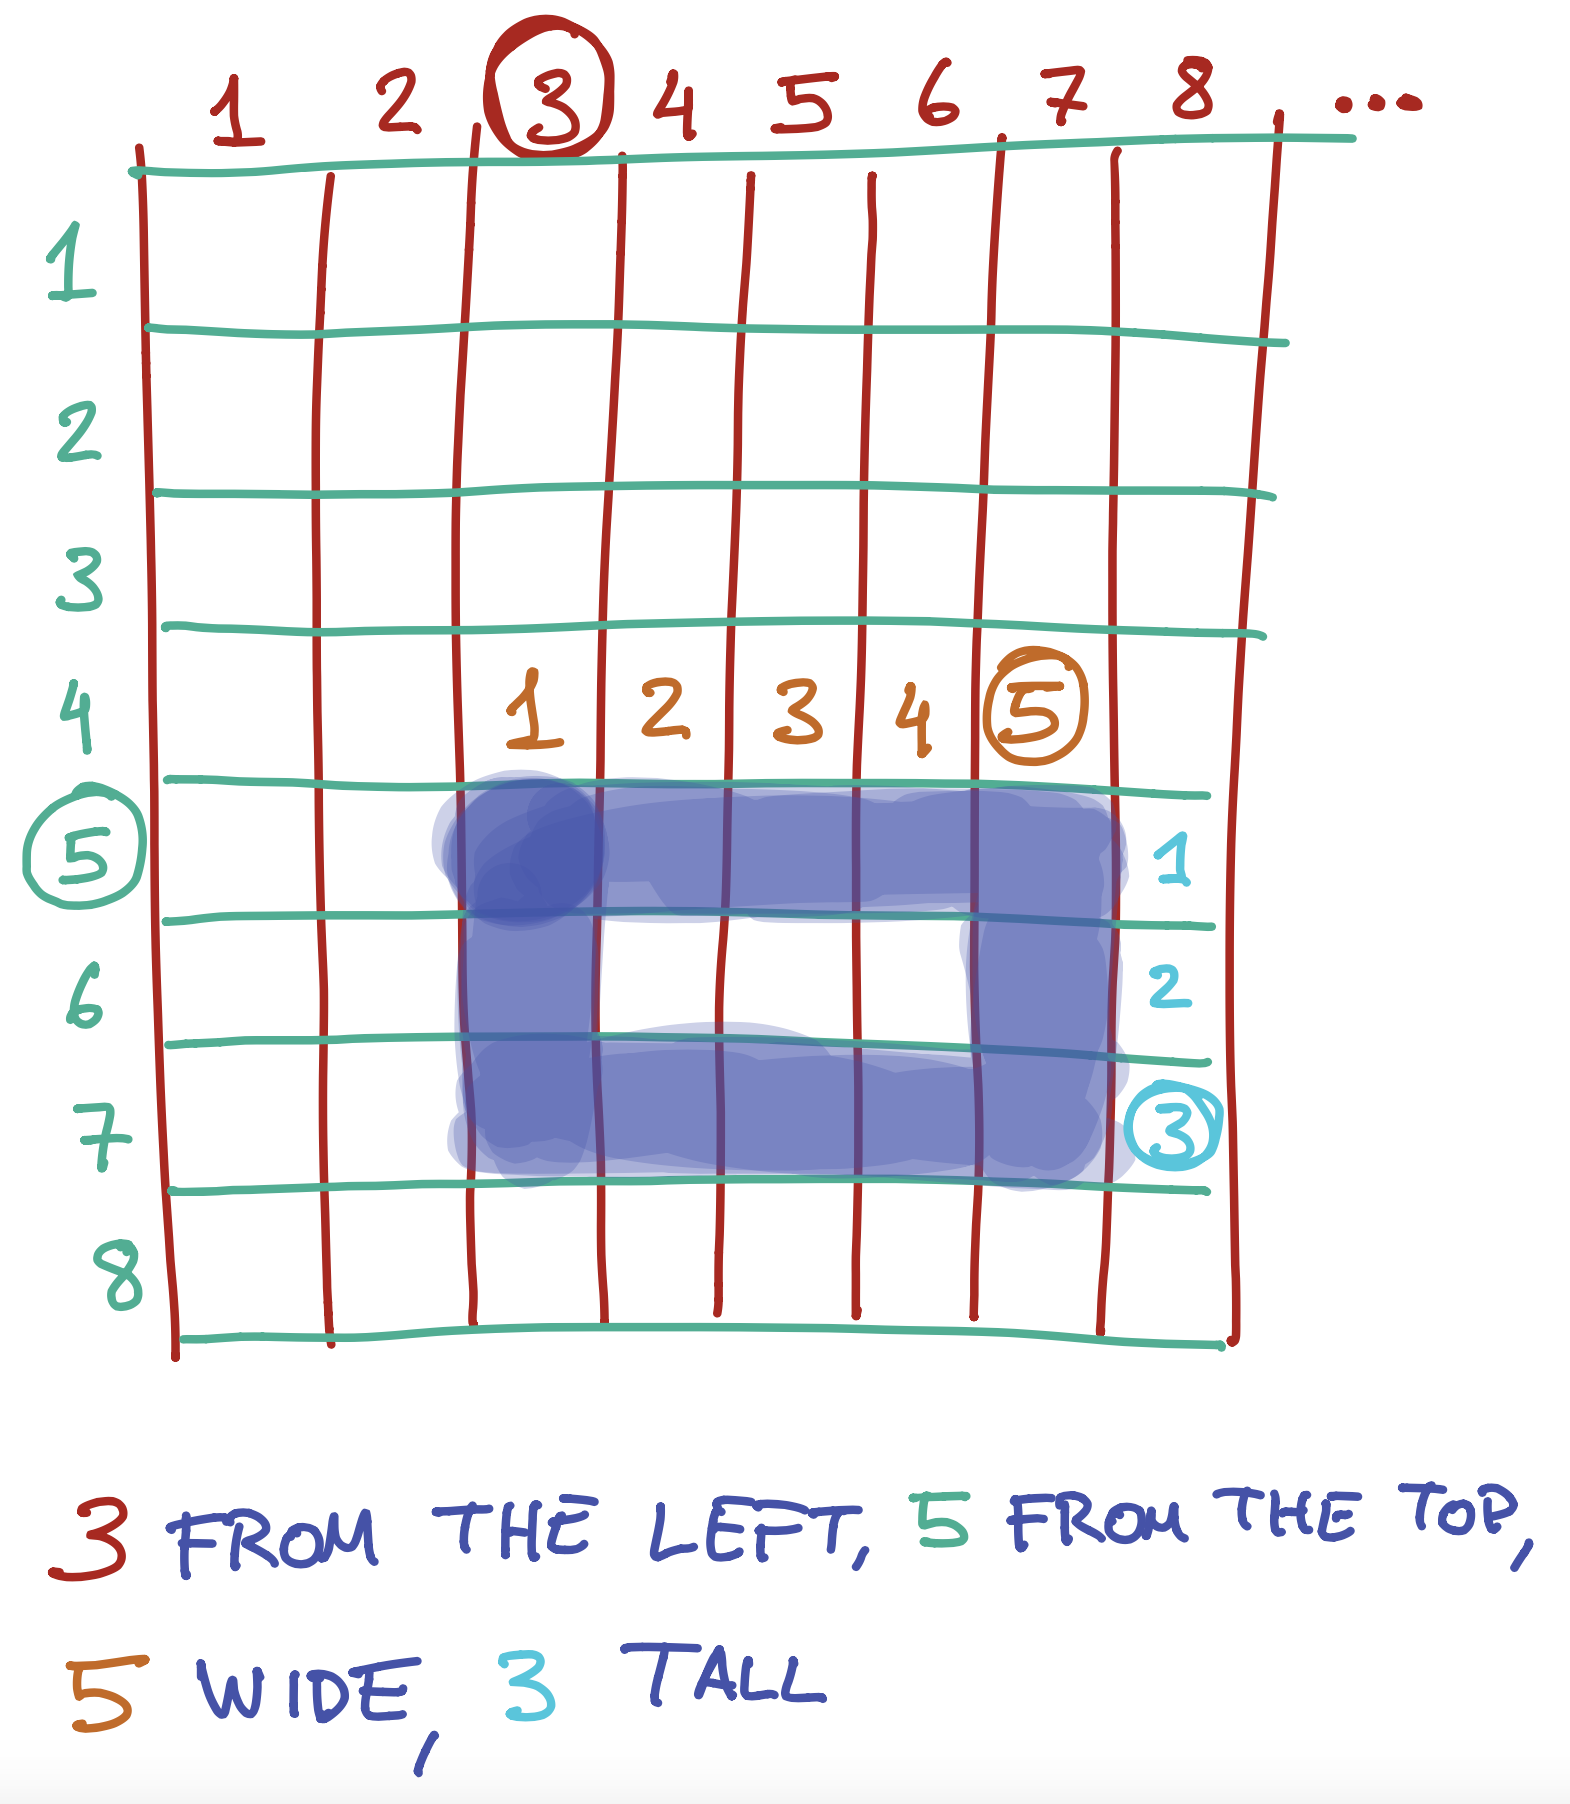 1 2 3 4 5 6 7 8 ...
1
2
3
4 1 2 3 4 5
5 1
6 2
7 3
8
3 FROM THE LEFT, 5 FROM THE TOP,
5 WIDE, 3 TALL